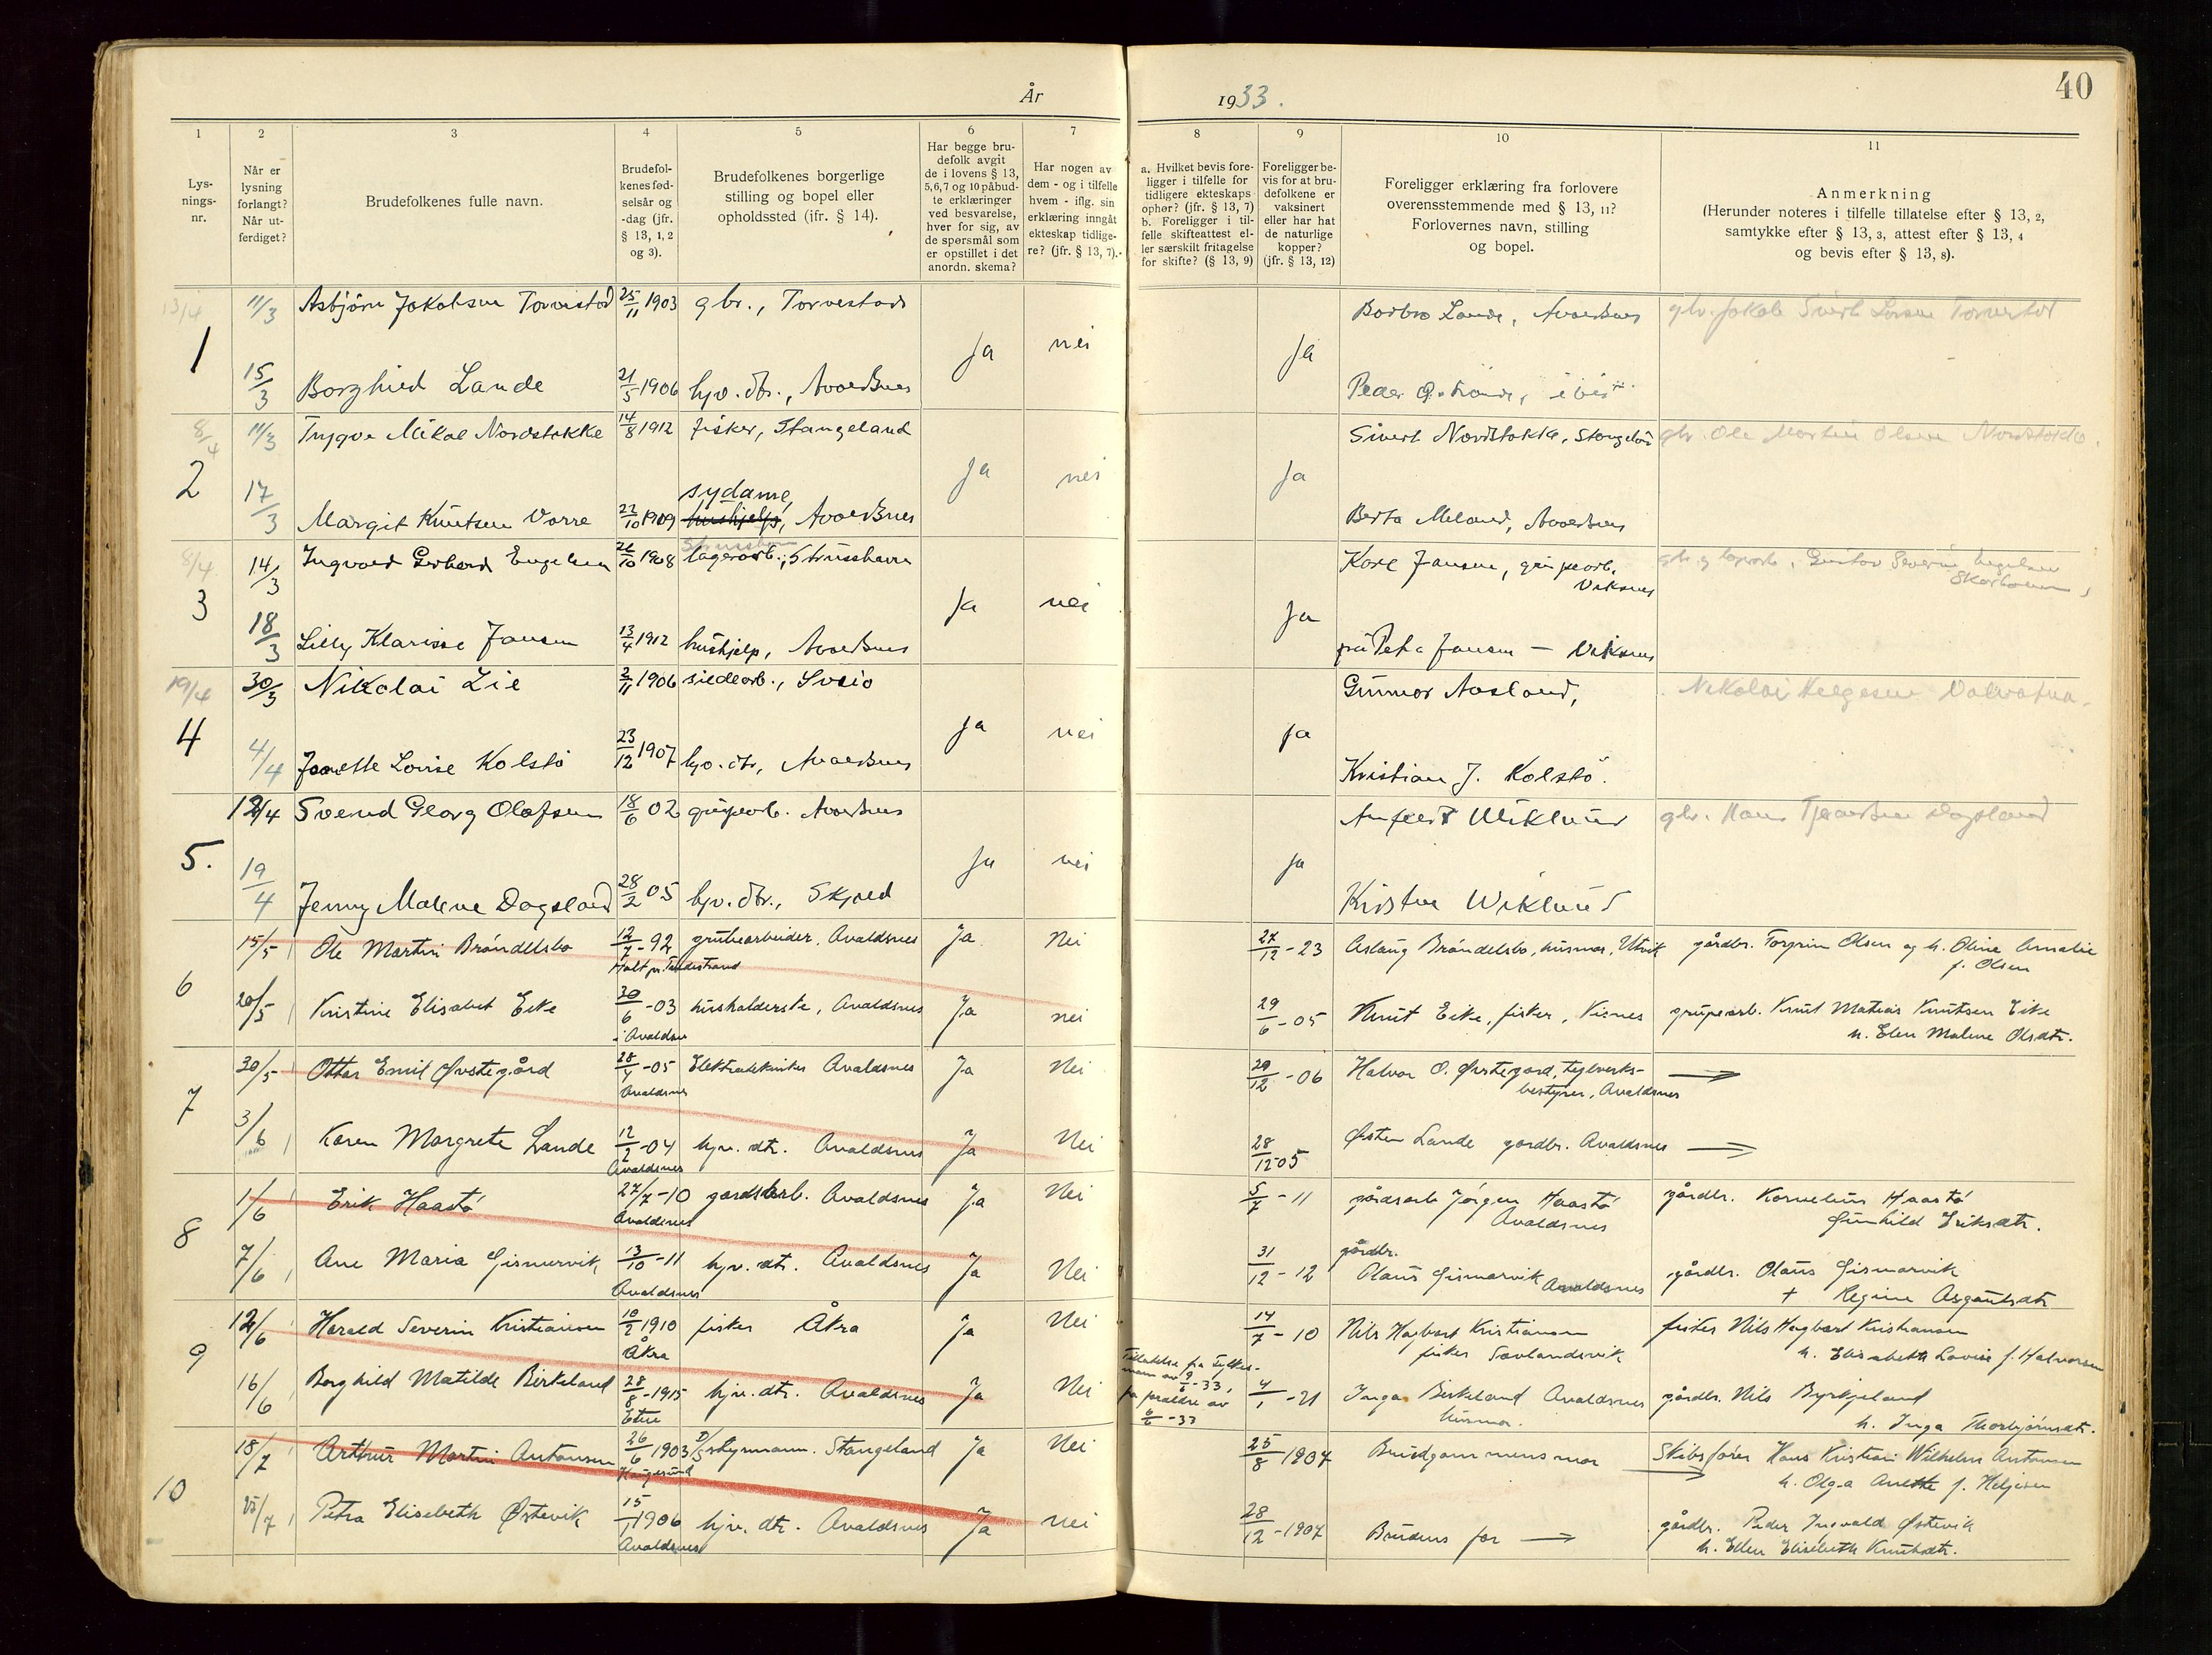 40
År 1933.
1 2 3 4 5 6 7 8 9 10 11
Lysningsnr.
Når er lysning forlangt? Når utferdiget?
Brudefolkenes fulle navn.
Brudefolkenes fødselsår og -dag (jfr. § 13, 1, 2 og 3).
Brudefolkenes borgerlige stilling og bopel eller opholdssted (ifr. § 14).
Har begge brudefolk avgit de i lovens § 13, 5,6,7 og 10 påbudte erklæringer ved besvarelse, hver for sig, av de spørsmål som er opstillet i det anordn. skema?
Har nogen av dem - og i tilfelle hvem - iflg. sin erklæring inngått ekteskap tidligere? (jfr. § 13, 7).
a. Hvilket bevis foreligger i tilfelle for tidligere ekteskaps ophør? (jfr. § 13, 7)
b. Foreligger i tilfelle skifteattest eller særskilt fritagelse for skifte? (§ 13, 9)
Foreligger bevis for at brudefolkene er vaksinert eller har hat de naturlige kopper? (jfr. § 13, 12)
Foreligger erklæring fra forlovere overensstemmende med § 13, 11? Forlovernes navn, stilling og bopel.
Anmerkning
(Herunder noteres i tilfelle tillatelse efter § 13, 2, samtykke efter § 13, 3, attest efter § 13, 4 og bevis efter § 13, 8).
13/4 11/3 Asbjørn Jakobsen Torvestad 25/11 1903 gbr., Torvestad Borbro Lande, Avaldsnes
1 Ja nei Ja
15/3 Borghild Lande 21/5 1906 hjv. dtr., Avaldsnes Peder
8/4 11/3 Trygve Mikal Nordstokke 14/8 1912 fisker, Stangeland Sivert Nordstokke, Stangeland gbr. Ole Martin Olsen Nordstokke.
2 Ja nei Ja
sydame,
17/3 Margit Knutsen Vorre 22/10 1909 hushjelp, Avaldsnes Berta Meland, Avaldsnes
8/4 14/3 Ingvald Gerhard Engelsen 26/10 1908 lagerarb., Strusshavn Karl Jansen, grupearb. Viksnes
3 Ja nei Ja
18/3 Lilly Klarisse Jansen 13/4 1912 hushjelp, Avaldsnes Jansen — Viksnes
19/4 30/3 Nikolai Lie 2/11 1906 sildearb., Sveio Gunnar Aasland, Nikolai Helgesen
4 Ja nei ja
4/4 Janette Lovise Kolstø 23/12 1907 hjv. dtr, Avaldsnes Kristian J. Kolstø.
12/4 Svend Georg Olafsen 18/6 02 grupearb. Avaldsnes Wiklund gbr. Hans Dagsland
5. Ja nei ja
19/4 Jenny Malene Dagsland 28/2 05 hjv. dtr., Skjold Kristine Wiklund
15/5 Ole Martin Brøndelsbo 12/7 - 92 grubearbeider, Avaldsnes Ja Nei 27/12 - 23 Aslaug Brøndelsbo, husmor, Utvik gårdbr. Torgrim Olsen og h. Oline Amalie f. Olsen
Holt pr. Tvedestrand
6
20/5 Kristine Elisabet Eike 30/6 - 03 husholderske, Avaldsnes Ja nei 29/6 - 05 Knut Eike, fisker, Visnes grupearb. Knut Matias Knutsen Eike h. Elen Malene Olsdtr.
Avaldsnes
30/5 Ottar Emil Øvstegård 28/4 - 05 Elektrotekniker Avaldsnes Ja Nei 20/12 - 06 Halvor O. Øvstegård, teglverksbestyrer, Avaldsnes
Avaldsnes
7
3/6 Karen Margrete Lande 12/2 - 04 hjv. dtr. Avaldsnes Ja Nei 28/12 05 Østen Lande gardbr. Avaldsnes
Avaldsnes
1/6 Erik Haastø 27/7 - 10 gardsarb. Avaldsnes Ja Nei 5/7 - 11 gårdsarb Jørgen Haastø Avaldsnes gårdbr. Kornelius Haastø Gunhild Eriksdtr.
Avaldsnes
8
7/6 Ane Maria Gismervik 13/10 - 11 hjv. dtr. Avaldsnes Ja Nei 31/12 - 12 gårdbr. Olaus Gismarvik Avaldsnes gårdbr. Olaus Gismarvik + Regine Asgautsdtr
Avaldsnes
12/6 Harald Severin Kristiansen 10/2 1910 fisker Åkra Ja Nei 14/7 - 10 Nils Hagbart Kristiansen fisker Sævlandsvik fisker Nils Hagbart Kristiansen h. Elisabeth Lovise f. Halvorsen
Åkra
9
16/6 Borghild Matilde Birkeland 28/8 - 1915 hjv. dtr. Avaldsnes Ja Nei Tillatelse fra Fylkesmann av 9/6 - 33, fra foreldre av 6/6 - 33 4/1 - 21 Inga Birkeland Avaldsnes husmor. gårdbr. Nils Byrkjeland h. Inga Thorbjørnsdtr.
Etne
18/7 Arthur Martin Antonsen 26/6 1903 D/S styrmann. Stangeland Ja Nei 25/8 1904 Brudgommens mor Skibsfører Hans Kristian Wilhelm Antonsen h. Olga Anette f. Heljesen
Haugesund
10
25/7 Petra Elisebeth Østevik 15/1 1906 hjv. dtr. Avaldsnes Ja nei 28/12 - 1907 Brudens far gårdbr. Peder Ingvald Østevik h. Ellen Elisebeth Knutsdtr.
Avaldsnes